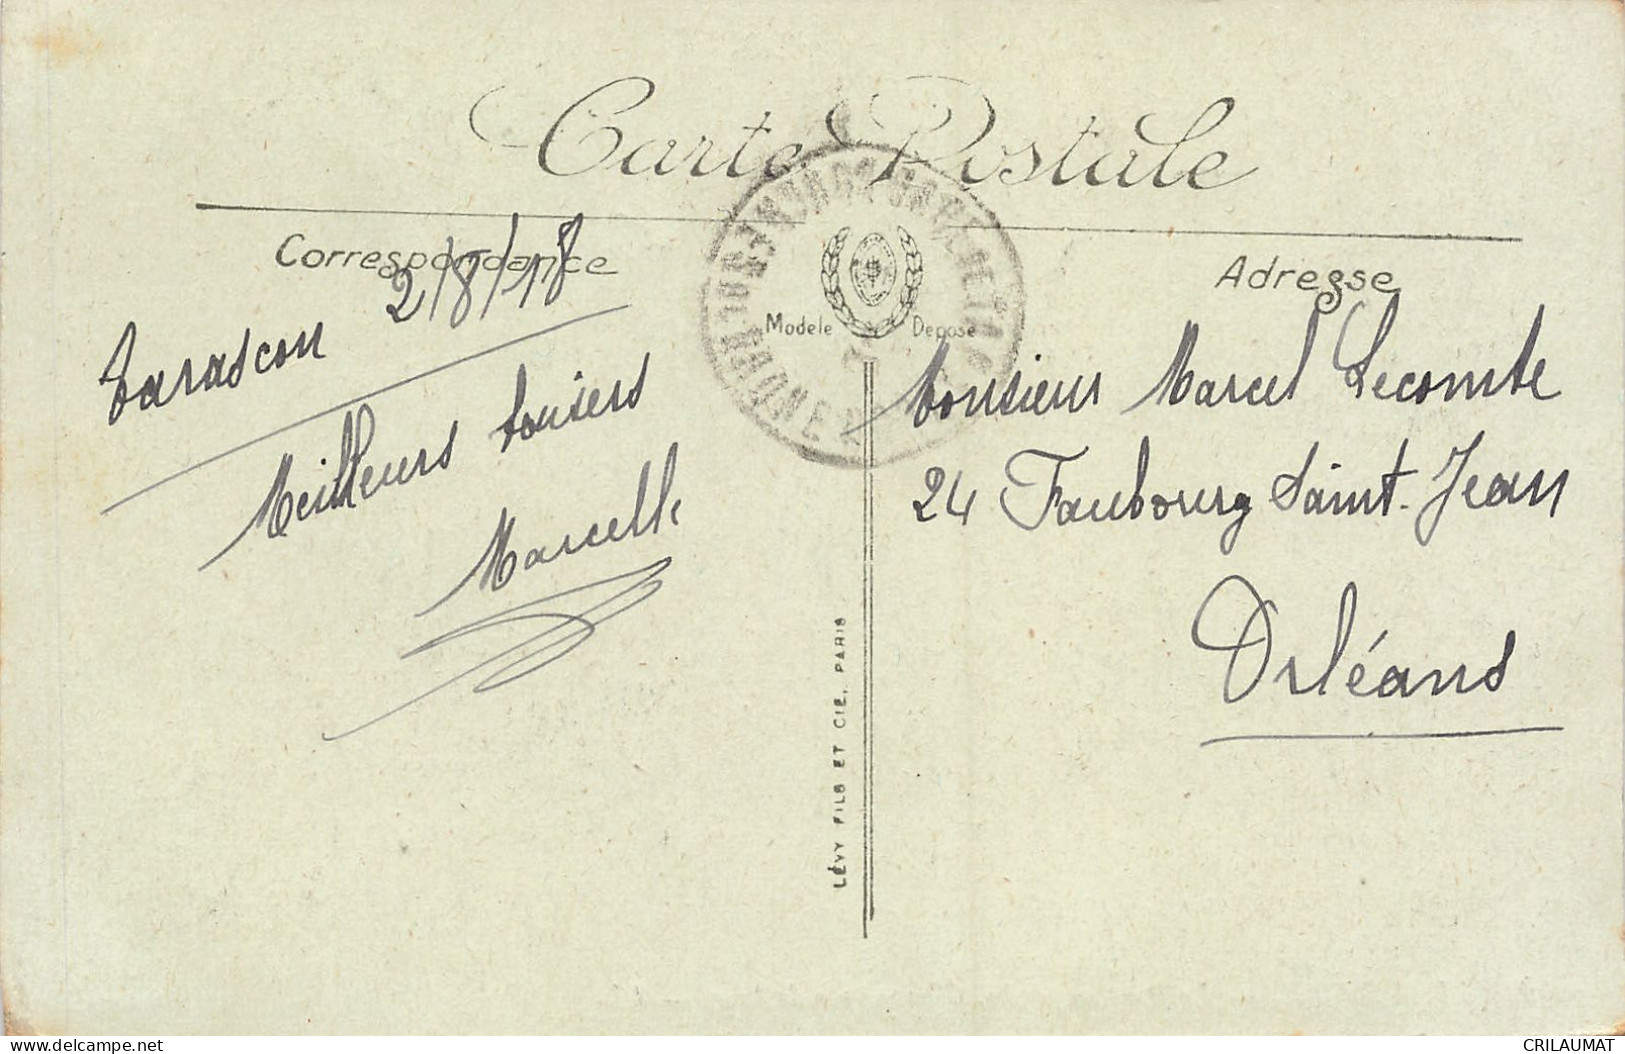 Carte Postale
Correspondance
Adresse
Modèle Déposé
Tarascon 2/8/18
Meilleurs baisers
Marcelle
Monsieur Marcel Lecomte
24 Faubourg Saint-Jean
Orléans
LÉVY FILS ET CIE, PARIS
www.delcampe.net
CRILAUMAT